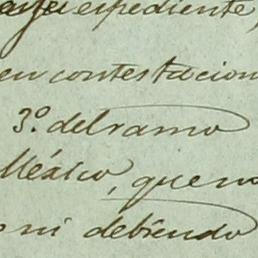 expediente,
en contestacion
3º. del ramo
México, que no
ni debiendo